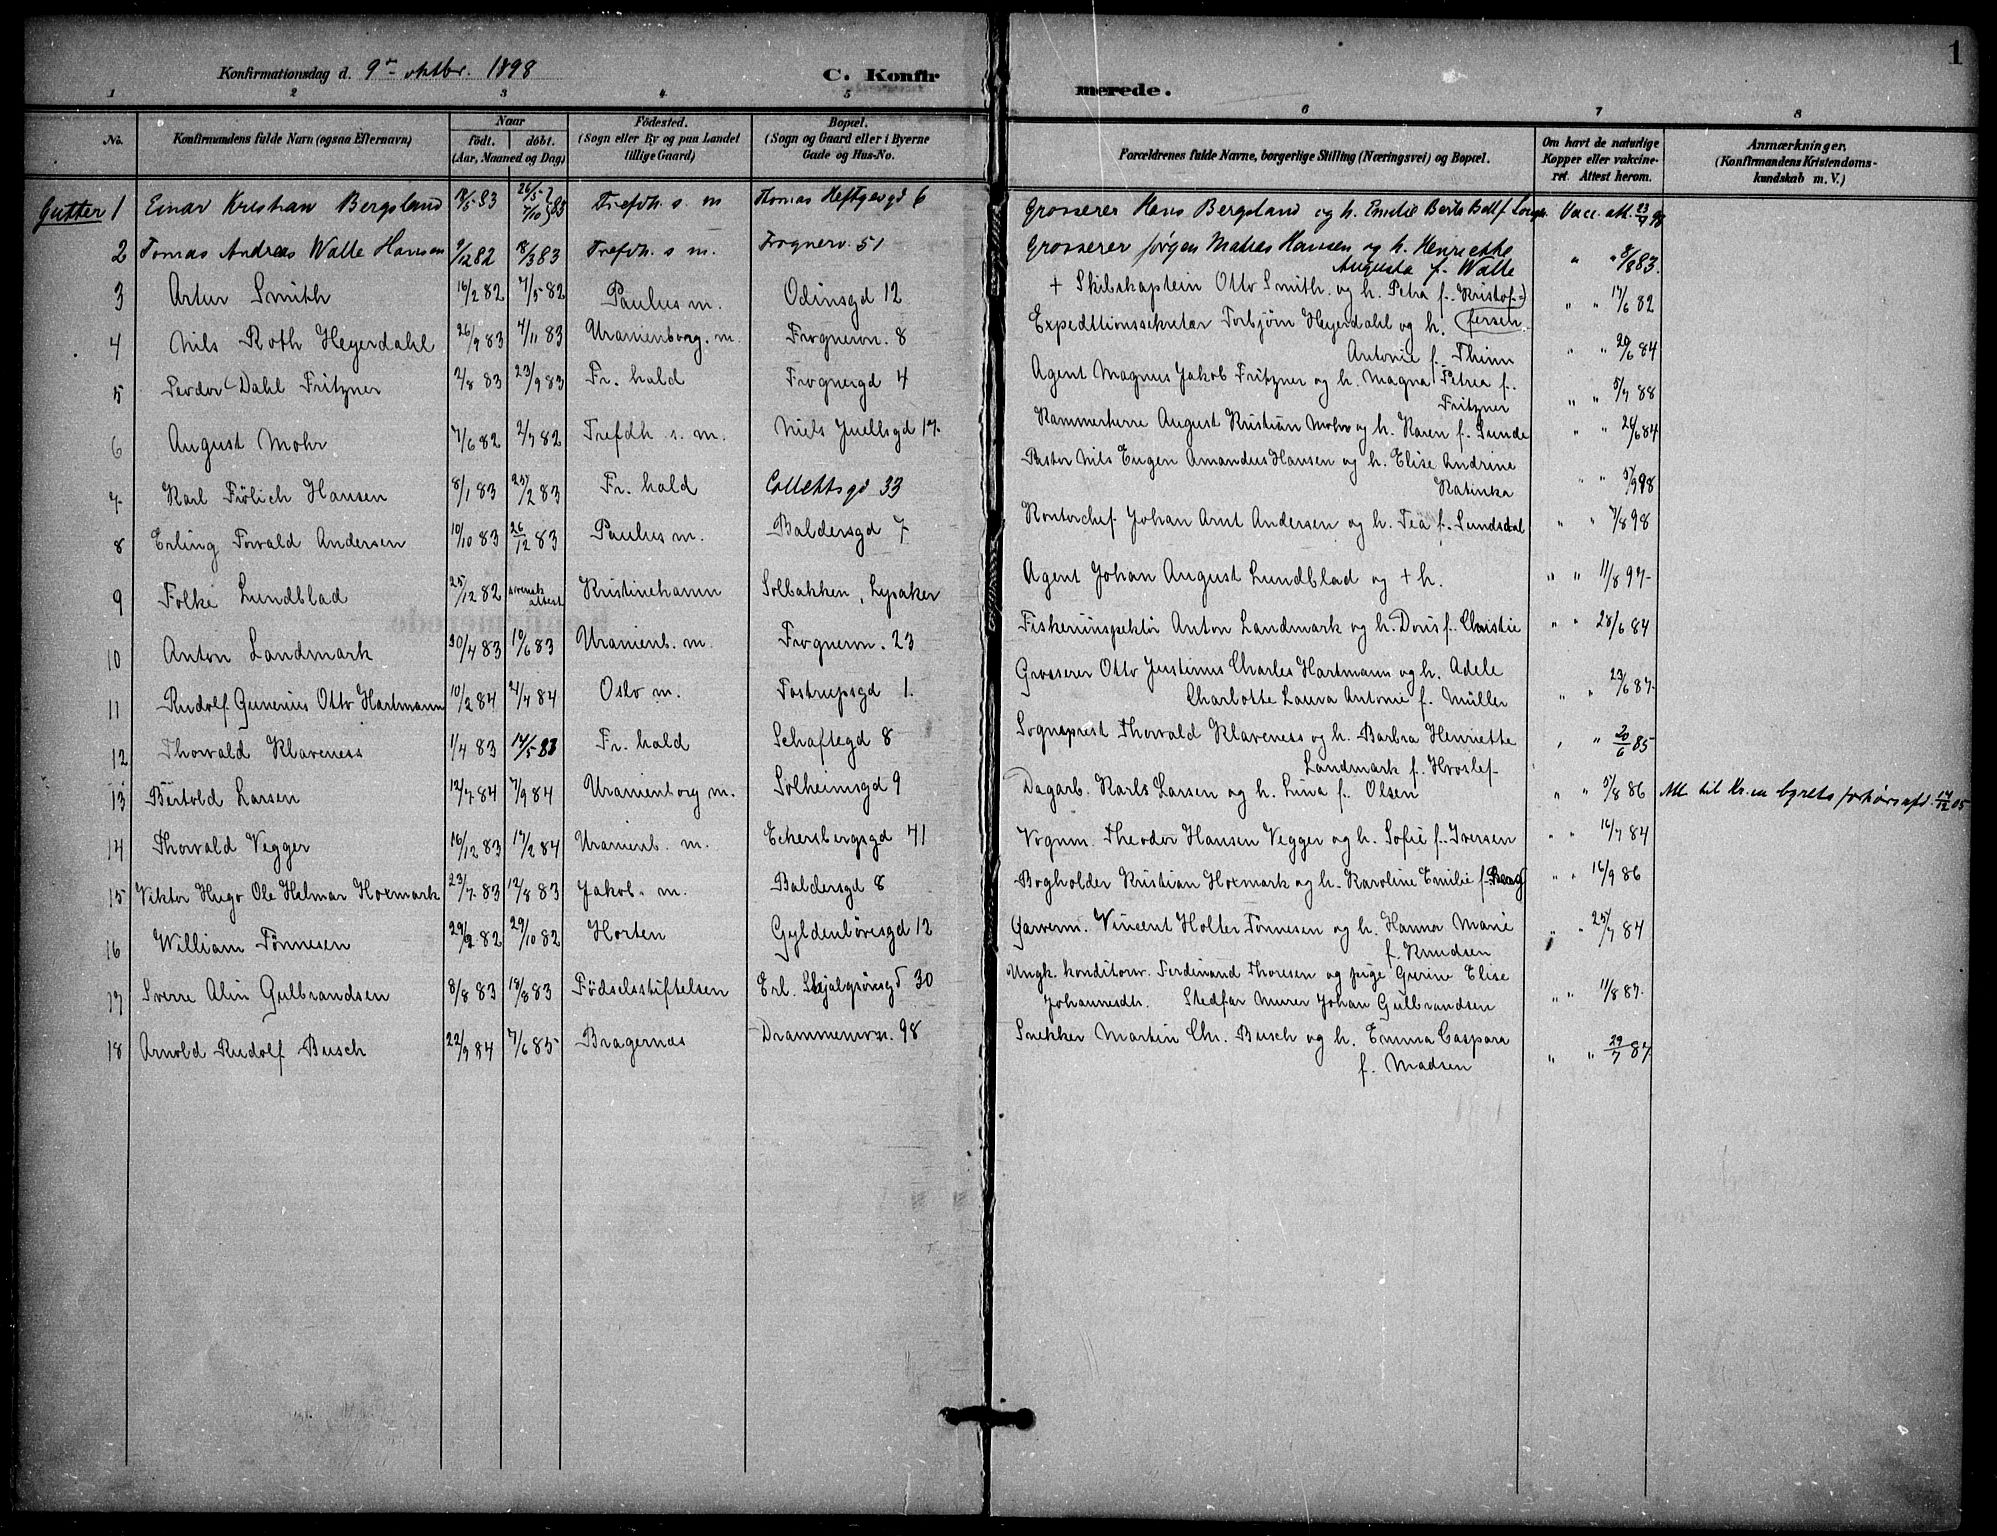 1
Konfirmationsdag d. 9de oktbr. 1898 C. Konfirmerede.
1 2 3 4 5 6 7 8
No. Konfirmandens fulde Navn (ogsaa Efternavn) Naar født. døbt. (Aar, Maaned og Dag) Fødested. (Sogn eller By og paa Landet tillige Gaard) Bopæl. (Sogn og Gaard eller i Byerne Gade og Hus-No. Forældrenes fulde Navne, borgerlige Stilling (Næringsvei) og Bopæl. Om havt de naturlige Kopper eller vaccineret. Attest herom. Anmærkninger, (Konfirmandens Kristendomskundskab m. V.)
Gutter 1 Einar Kristian Bergsland 18/5 83 26/5 7/10 } 83 Trefdh. s. m Thomas Heftyesgd 6 Grosserer Hans Bergsland og h. Emilie Berts Vacc. att. 23/9 98
2 Tomas Andreas Walle Hansen 9/12 82 18/3 83 Trefdh. s m. Frognerv. 51 Grosserer Jørgen Matias Hansen og h. Henriette
Augusta f. Walle " " 8/8 83.
3 Artur Smith 16/2 82 7/5 82 Paulus m. Odinsgd 12 + Skibskaptein Otto Smith. og h. Petra f. Kristof=) " " 17/6 82
fersen
4 Nils Roth Heyerdahl 26/9 83 4/11 83 Uranienborg. m. Frognervn. 8 Expeditionssekretær Torbjørn Heyerdahl og h.
Antonie f. Thinn " " 20/6 84
5 Teodor Dahl Fritzner 2/8 83 23/9 83 Fr. hald Frognergd 4 Agent Magnus Jakob Fritzner og h. Magna Petrea f.
Fritzner " " 5/7 88
6 August Mohr 7/6 82 2/7 82 Trefdh s. m. Niels Juellsgd 17. Kammerherre August Kristian Mohr og h. Karen f. Sunde " " 26/6 84
7 Karl Frölich Hansen 8/1 83 25/2 83 Fr. hald Collettsgd 33 Pastor Nils Eugen Amandus Hansen og h. Elise Andrine
Katinka " " 5/9 98
8 Erling Torvald Andersen 10/10 83 26/12 83 Paulus m. Baldersgd 7 Kontorchef Johan Arnt Andersen og h. Tea f. Sundsdal " " 7/8 98
9 Folke Lundblad 25/12 82 svensk attest Kristinehamn Solbakken, Lysaker Agent Johan August Lundblad og + h. " " 11/8 97
10 Anton Landmark 30/4 83 10/6 83 Uranienb. m. Frognervn. 23 Fiskeriinspektör Anton Landmark og h. Doris f. Christie " " 28/6 84
11 Rudolf Gunerius Otto Hartmann 10/2 84 21/4 84 Oslo m. Tostrupsgd 1. Grosserer Otto Justinus Charles Hartmann og h. Adele
Charlotte Laura Antonie f. Müller " " 23/6 87.
12 Thorvald Klaveness 1/4 83 14/5 83 Fr. hald Schaftegd 8 Sogneprest Thorvald Klaveness og h. Barbra Henriette
Landmark f. Hvoslef " " 20/6 85
13 Bertold Larsen 12/7 84 7/9 84 Uranienborg m. Solheimsgd 9 Dagarb. Karls Larsen og h. Lina f. Olsen " " 5/8 86 Att. til Kr.ia byrets forhørsafd. 14/12 05
14 Thorvald Vegger 16/12 83 17/2 84 Uranienb. m. Eckersbergsgd 41 Vognm. Theodor Hansen Vegger og h. Sofie f. Iversen " " 16/7 84
15 Viktor Hugo Ole Helmar Hoxmark 23/7 83 12/8 83 Jakob. m. Baldersgd 8 Bogholder Kristian Hoxmark og h. Karoline Emilie f. Berg " " 16/9 86
16 William Tönnesen 29/2 82 29/10 82 Horten Gyldenlövesgd 12 Garverm. Vincent Holter Tönnesen og h. Hanna Marie
f. Knudsen " " 25/7 84
17 Sverre Alin Gulbrandsen 8/8 83 18/8 83 Födselsstiftelsen Erl. Skjalgsönsgd 30 Ungk. konditorsv. Ferdinand Thoresen og pige Gurine Elise
Johannesdtr. Stedfar Murer Johan Gulbrandsen " " 11/8 87.
18 Arnold Rudolf Busch 22/9 84 7/6 85 Bragernæs Drammensvn. 98 Snekker Martin Chr. Busch og h. Emma Caspara
f. Madsen " " 29/7 87